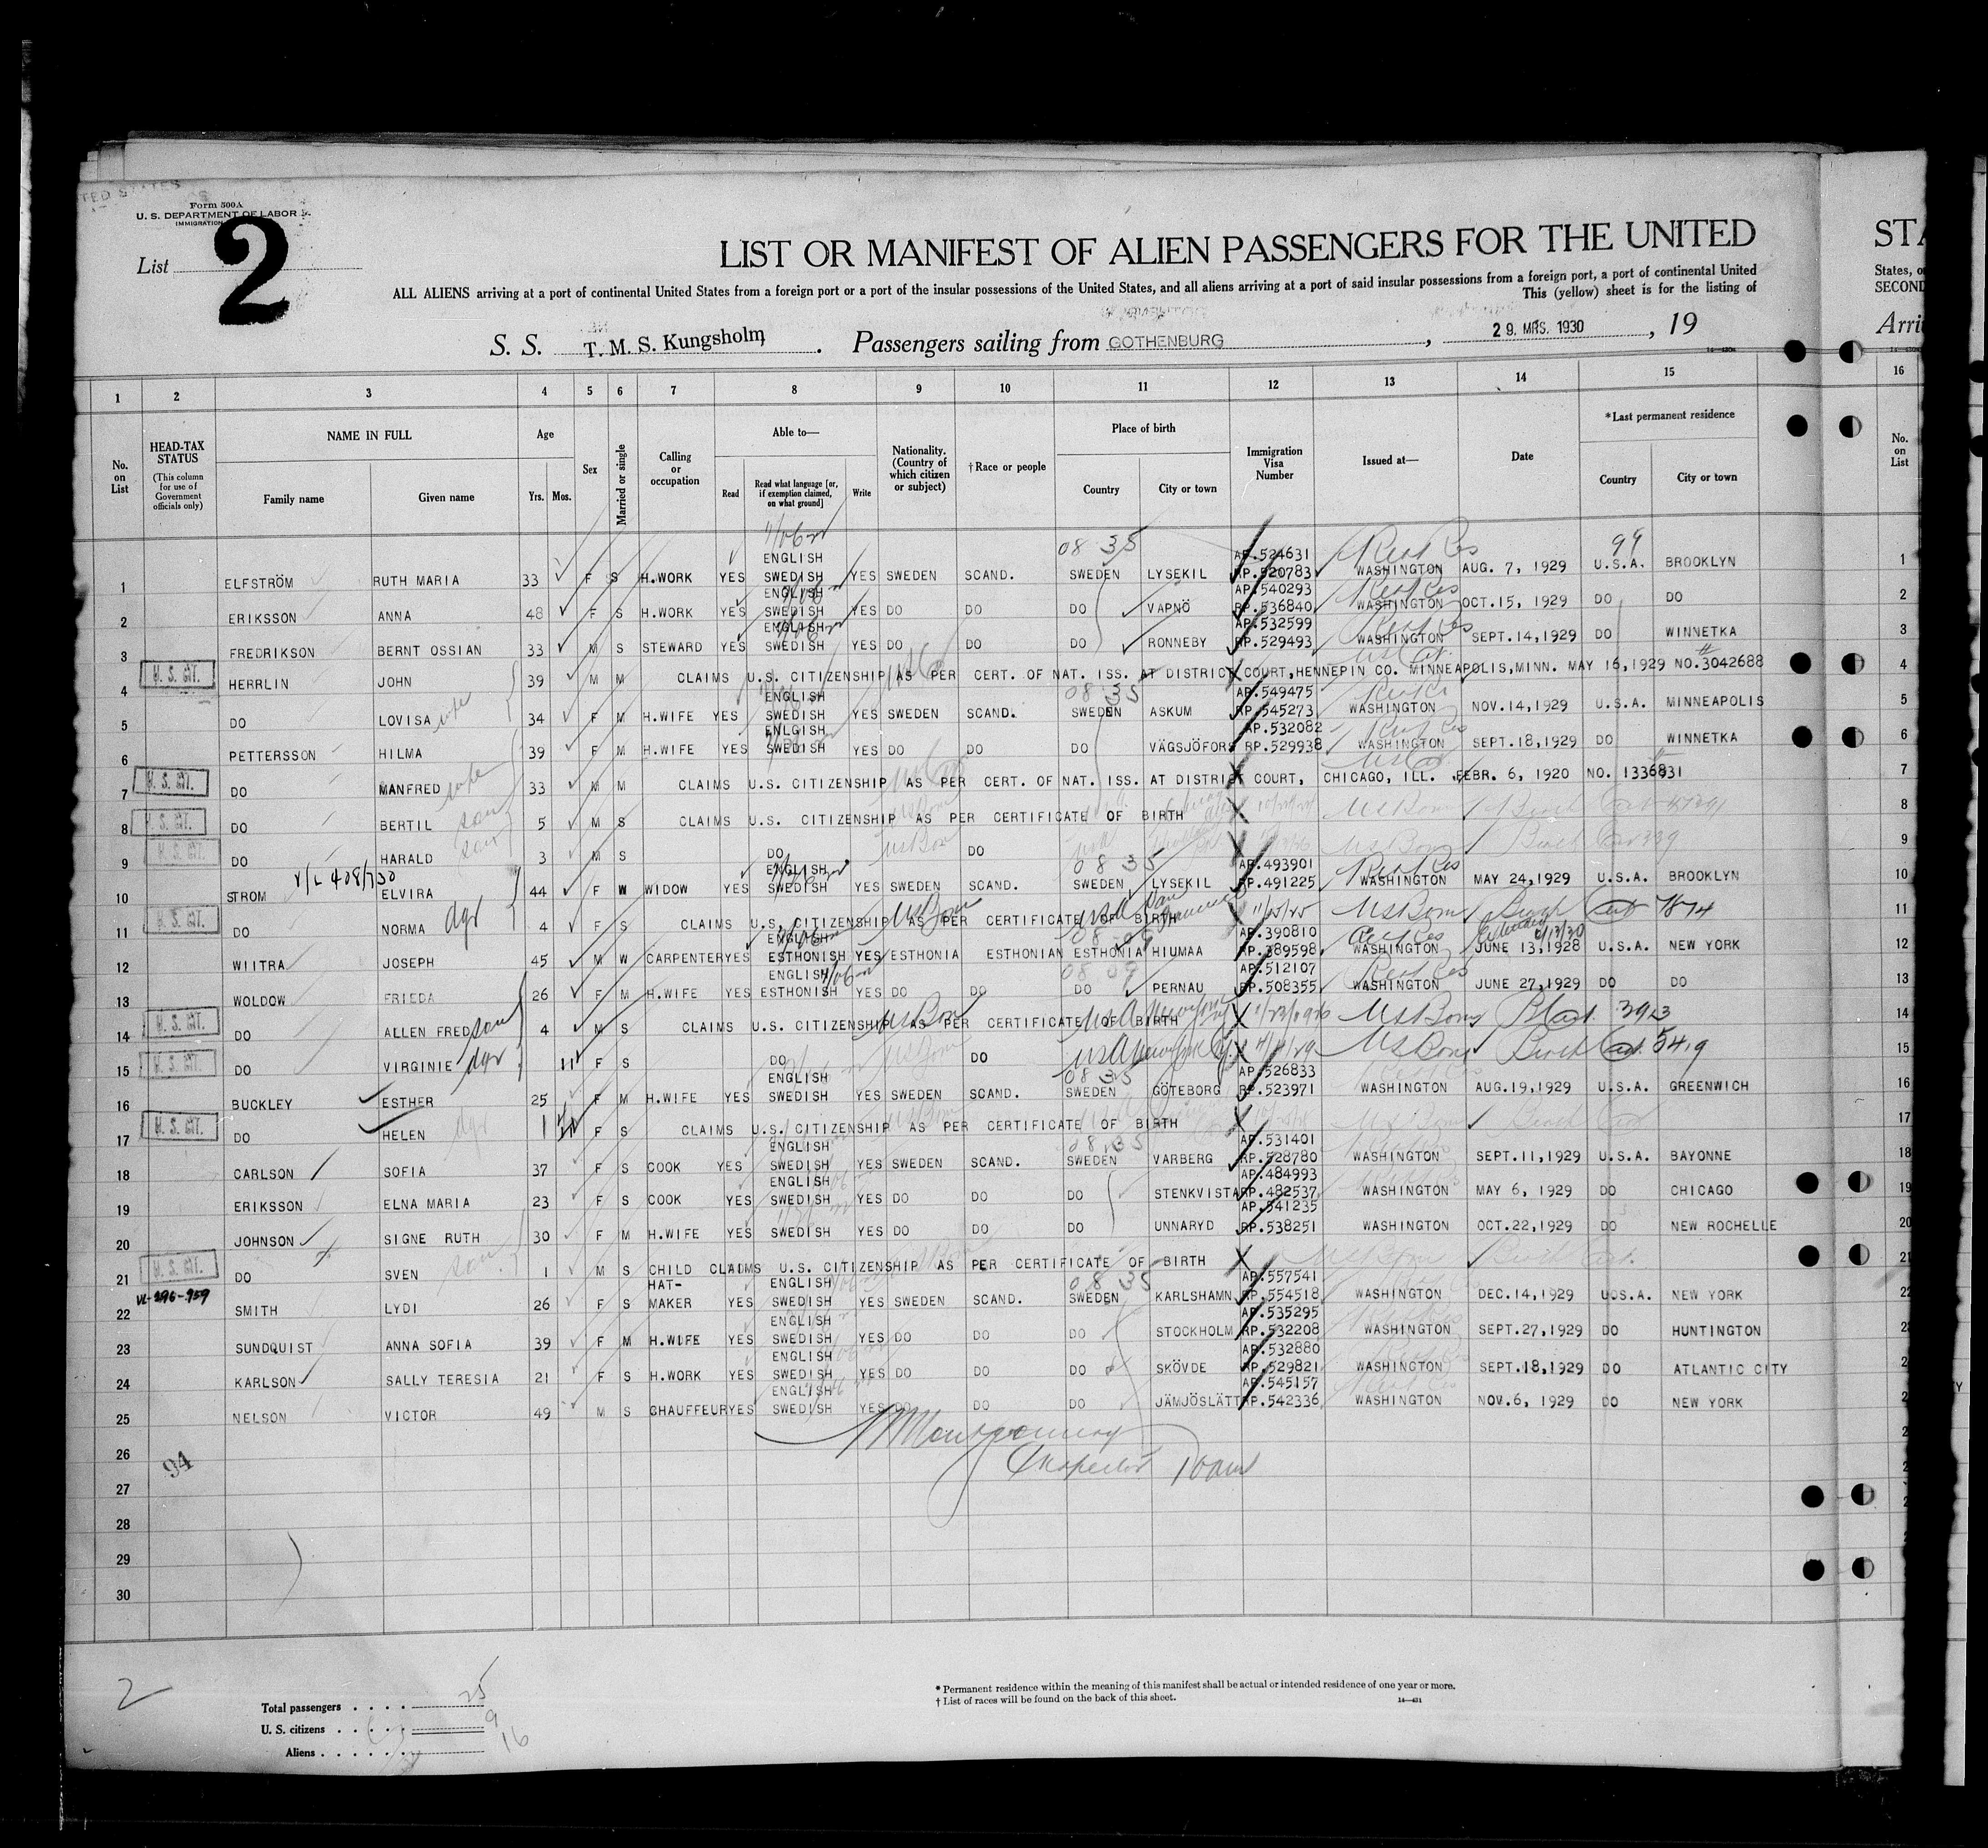 Form 500A
U. S. DEPARTMENT OF LABOR
IMMIGRATION
List 2
LIST OR MANIFEST OF ALIEN PASSENGERS FOR THE UNITED
ALL ALIENS arriving at a port of continental United States from a foreign port or a port of the insular possessions of the United States, and all aliens arriving at a port of said insular possessions from a foreign port, a port of continental United
This (yellow) sheet is for the listing of
S. S. T. M. S. Kungsholm. Passengers sailing from GOTHENBURG, 29. MRS. 1930, 19
STA
States, o
SECOND
Arri
1 2 3 4 5 6 7 8 9 10 11 12 13 14 15 16
No. on List
HEAD-TAX STATUS (This column for use of Government officials only)
NAME IN FULL Family name Given name
Age Yrs. Mos.
Sex
Married or single
Calling or occupation
Able to— Read Read what language [or, if exemption claimed, on what ground] Write
Nationality. (Country of which citizen or subject)
†Race or people
Place of birth Country City or town
Immigration Visa Number
Issued at—
Date
*Last permanent residence Country City or town
No. on List
08 35 99
ENGLISH AP.524631
1 ELFSTRÖM RUTH MARIA 33 F S H.WORK YES SWEDISH YES SWEDEN SCAND. SWEDEN LYSEKIL RP.520783 WASHINGTON AUG. 7, 1929 U.S.A. BROOKLYN 1
ENGLISH AP.540293
2 ERIKSSON ANNA 48 F S H.WORK YES SWEDISH YES DO DO DO VAPNÖ RP.536840 WASHINGTON OCT.15, 1929 DO DO 2
ENGLISH AP.532599
3 FREDRIKSON BERNT OSSIAN 33 M S STEWARD YES SWEDISH YES DO DO DO RONNEBY RP.529493 WASHINGTON SEPT.14,1929 DO WINNETKA 3
4 U. S. CIT. HERRLIN JOHN 39 M M CLAIMS U.S. CITIZENSHIP AS PER CERT. OF NAT. ISS. AT DISTRICT COURT,HENNEPIN CO. MINNEAPOLIS,MINN. MAY 16,1929 NO.3042688 4
ENGLISH 08 35 AP.549475
5 DO LOVISA wife 34 F M H.WIFE YES SWEDISH YES SWEDEN SCAND. SWEDEN ASKUM RP.545273 WASHINGTON NOV.14,1929 U.S.A. MINNEAPOLIS 5
ENLGISH AP.532082
6 PETTERSSON HILMA 39 F M H.WIFE YES SWEDISH YES DO DO DO VÄGSJÖFORS RP.529938 WASHINGTON SEPT.18,1929 DO WINNETKA 6
7 U. S. CIT. DO MANFRED 33 M M CLAIMS U.S. CITIZENSHIP AS PER CERT. OF NAT. ISS. AT DISTRICT COURT, CHICAGO, ILL. FEBR. 6, 1920 NO. 1336831 7
8 U. S. CIT. DO BERTIL son 5 M S CLAIMS U.S. CITIZENSHIP AS PER CERTIFICATE OF BIRTH 8
9 U. S. CIT. DO HARALD son 3 M S DO DO 9
ENGLISH 08 35 AP.493901
10 STROM ELVIRA 44 F W WIDOW YES SWEDISH YES SWEDEN SCAND. SWEDEN LYSEKIL RP.491225 WASHINGTON MAY 24,1929 U.S.A. BROOKLYN 10
11 U. S. CIT. DO NORMA dgr 4 F S CLAIMS U.S. CITIZENSHIP AS PER CERTIFICATE OF BIRTH 11
ENGLISH AP.390810
12 WIITRA JOSEPH 45 M W CARPENTER YES ESTHONISH YES ESTHONIA ESTHONIAN ESTHONIA HIUMAA RP.389598 WASHINGTON JUNE 13,1928 U.S.A. NEW YORK 12
ENGLISH AP.512107
13 WOLDOW FRIEDA 26 F M H.WIFE YES ESTHONISH YES DO DO DO PERNAU RP.508355 WASHINGTON JUNE 27,1929 DO DO 13
14 U. S. CIT. DO ALLEN FRED son 4 M S CLAIMS U.S. CITIZENSHIP AS PER CERTIFICATE OF BIRTH 14
15 U. S. CIT. DO VIRGINIE dgr 11 F S DO DO 15
ENGLISH 08 35 AP.526833
16 BUCKLEY ESTHER 25 F M H.WIFE YES SWEDISH YES SWEDEN SCAND. SWEDEN GÖTEBORG RP.523971 WASHINGTON AUG.19,1929 U.S.A. GREENWICH 16
17 U. S. CIT. DO HELEN dgr 1 11 F S CLAIMS U.S. CITIZENSHIP AS PER CERTIFICATE OF BIRTH 17
ENGLISH 08 35 AP.531401
18 CARLSON SOFIA 37 F S COOK YES SWEDISH YES SWEDEN SCAND. SWEDEN VARBERG RP.528780 WASHINGTON SEPT.11,1929 U.S.A. BAYONNE 18
ENGLISH AP.484993
19 ERIKSSON ELNA MARIA 23 F S COOK YES SWEDISH YES DO DO DO STENKVISTA RP.482537 WASHINGTON MAY 6, 1929 DO CHICAGO 19
AP.541235
20 JOHNSON SIGNE RUTH 30 F M H.WIFE YES SWEDISH YES DO DO DO UNNARYD RP.538251 WASHINGTON OCT.22,1929 DO NEW ROCHELLE 20
21 U. S. CIT. DO SVEN son 1 M S CHILD CLAIMS U.S. CITIZENSHIP AS PER CERTIFICATE OF BIRTH 21
HAT- ENGLISH 08 35 AP.557541
22 SMITH LYDI 26 F S MAKER YES SWEDISH YES SWEDEN SCAND. SWEDEN KARLSHAMN RP.554518 WASHINGTON DEC.14,1929 UOS.A. NEW YORK 22
ENGLISH AP.535295
23 SUNDQUIST ANNA SOFIA 39 F M H.WIFE YES SWEDISH YES DO DO DO STOCKHOLM RP.532208 WASHINGTON SEPT.27,1929 DO HUNTINGTON
ENGLISH AP.532880
24 KARLSON SALLY TERESIA 21 F S H.WORK YES SWEDISH YES DO DO DO SKÖVDE RP.529821 WASHINGTON SEPT.18,1929 DO ATLANTIC CITY
ENGLISH AP.545157
25 NELSON VICTOR 49 M S CHAUFFEUR YES SWEDISH YES DO DO DO JÄMJÖSLÄTT RP.542336 WASHINGTON NOV.6, 1929 DO NEW YORK
26 94
27
28
29
30
2
Total passengers . . . . 25
U. S. citizens . . . . 9
Aliens . . . . . . 16
* Permanent residence within the meaning of this manifest shall be actual or intended residence of one year or more.
† List of races will be found on the back of this sheet.